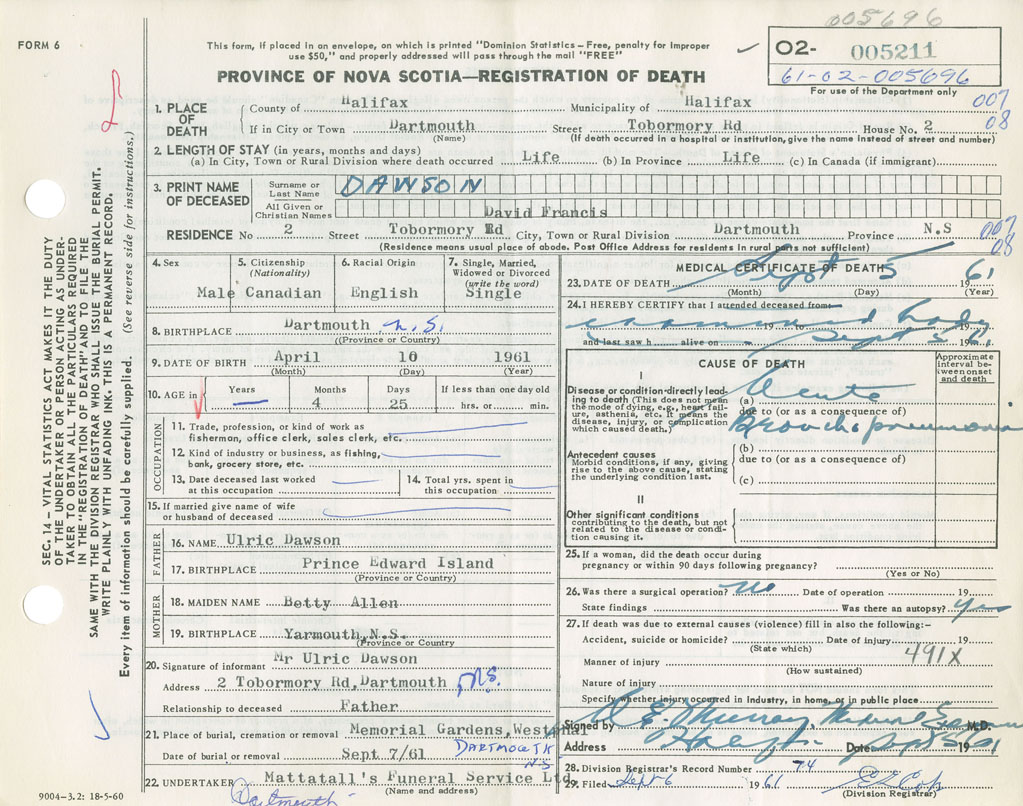 005696
FORM 6
This form, if placed in an envelope, on which is printed "Dominion Statistics – Free, penalty for improper
use $50," and properly addressed will pass through the mail "FREE"
02- 005211
61-02-005696
For use of the Department only
PROVINCE OF NOVA SCOTIA—REGISTRATION OF DEATH
007
08
1. PLACE OF DEATH
County of Halifax Municipality of Halifax
If in City or Town Dartmouth Street Tobormory Rd House No. 2
(Name) (If death occurred in a hospital or institution, give the name instead of street and number)
2. LENGTH OF STAY (in years, months and days)
(a) In City, Town or Rural Division where death occurred Life (b) In Province Life (c) In Canada (if immigrant)
3. PRINT NAME OF DECEASED
Surname or Last Name DAWSON
All Given or Christian Names David Francis
RESIDENCE No 2 Street Tobormory Rd City, Town or Rural Division Dartmouth Province N.S
007
08
(Residence means usual place of abode. Post Office Address for residents in rural parts not sufficient)
4. Sex
Male
5. Citizenship
(Nationality)
Canadian
6. Racial Origin
English
7. Single, Married,
Widowed or Divorced
(write the word)
Single
8. BIRTHPLACE Dartmouth N.S.
((Province or Country)
9. DATE OF BIRTH April 10 1961
(Month) (Day) (Year)
10. AGE in
Years Months Days If less than one day old
— 4 25 hrs. or min.
OCCUPATION
11. Trade, profession, or kind of work as
fisherman, office clerk, sales clerk, etc.
12. Kind of industry or business, as fishing,
bank, grocery store, etc.
13. Date deceased last worked
at this occupation
14. Total yrs. spent in
this occupation
15. If married give name of wife
or husband of deceased
FATHER
16. NAME Ulric Dawson
17. BIRTHPLACE Prince Edward Island
(Province or Country)
MOTHER
18. MAIDEN NAME Betty Allen
19. BIRTHPLACE Yarmouth, N.S.
(Province or Country)
20. Signature of informant Mr Ulric Dawson
Address 2 Tobormory Rd, Dartmouth N.S.
Relationship to deceased Father
21. Place of burial, cremation or removal Memorial Gardens, Westphal
DARTMOUTH
N.S
Date of burial or removal Sept 7/61
22. UNDERTAKER Mattatall's Funeral Service Ltd.
(Name and address)
Dartmouth
9004-3.2: 18-5-60
MEDICAL CERTIFICATE OF DEATH
23. DATE OF DEATH Sept 5 1961
(Month) (Day) (Year)
24. I HEREBY CERTIFY that I attended deceased from
examined body
19 to 19
and last saw h alive on Sept 5 19
CAUSE OF DEATH
Approximate
interval be-
tween onset
and death
I
Disease or condition directly lead-
ing to death (This does not mean
the mode of dying, e.g., heart fail-
ure, asthenia, etc. It means the
disease, injury, or complication
which caused death.)
(a) Acute
due to (or as a consequence of)
Bronchopneumonia
Antecedent causes
Morbid conditions, if any, giving
rise to the above cause, stating
the underlying condition last.
(b)
due to (or as a consequence of)
(c)
II
Other significant conditions
contributing to the death, but not
related to the disease or condi-
tion causing it.
25. If a woman, did the death occur during
pregnancy or within 90 days following pregnancy?
(Yes or No)
26. Was there a surgical operation? No Date of operation 19
State findings Was there an autopsy? Yes
27. If death was due to external causes (violence) fill in also the following:–
Accident, suicide or homicide? Date of injury 19
(State which)
491X
Manner of injury
(How sustained)
Nature of injury
Specify whether injury occurred in industry, in home, or in public place
Signed by E. Murray Medical Examiner M.D.
Address Date Sept 5 1961
28. Division Registrar's Record Number 74
29. Filed Sept 6 1961
(Division Registrar)
SEC. 14 – VITAL STATISTICS ACT MAKES IT THE DUTY
OF THE UNDERTAKER OR PERSON ACTING AS UNDER-
TAKER TO OBTAIN ALL THE PARTICULARS REQUIRED
IN THE "REGISTRATION OF DEATH" AND TO FILE THE
SAME WITH THE DIVISION REGISTRAR WHO SHALL ISSUE THE BURIAL PERMIT.
WRITE PLAINLY WITH UNFADING INK. THIS IS A PERMANENT RECORD.
Every item of information should be carefully supplied. (See reverse side for instructions.)